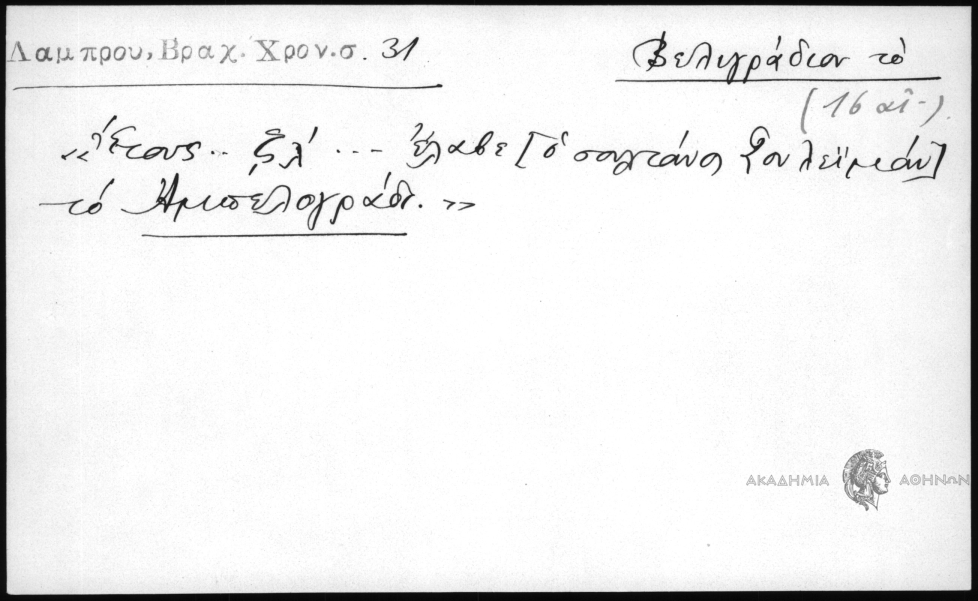 Λαμπρου, Βραχ. Χρον. σ. 31
Βελιγράδιον τὸ
(16 αἰ.)
«Ἔτους .. ζλ´ ... ἔλαβε [ὁ σουλτάνος Σουλεϊμάν]
τὸ Ἀμπελογράδι. »
ΑΚΑΔΗΜΙΑ ΑΘΗΝΩΝ